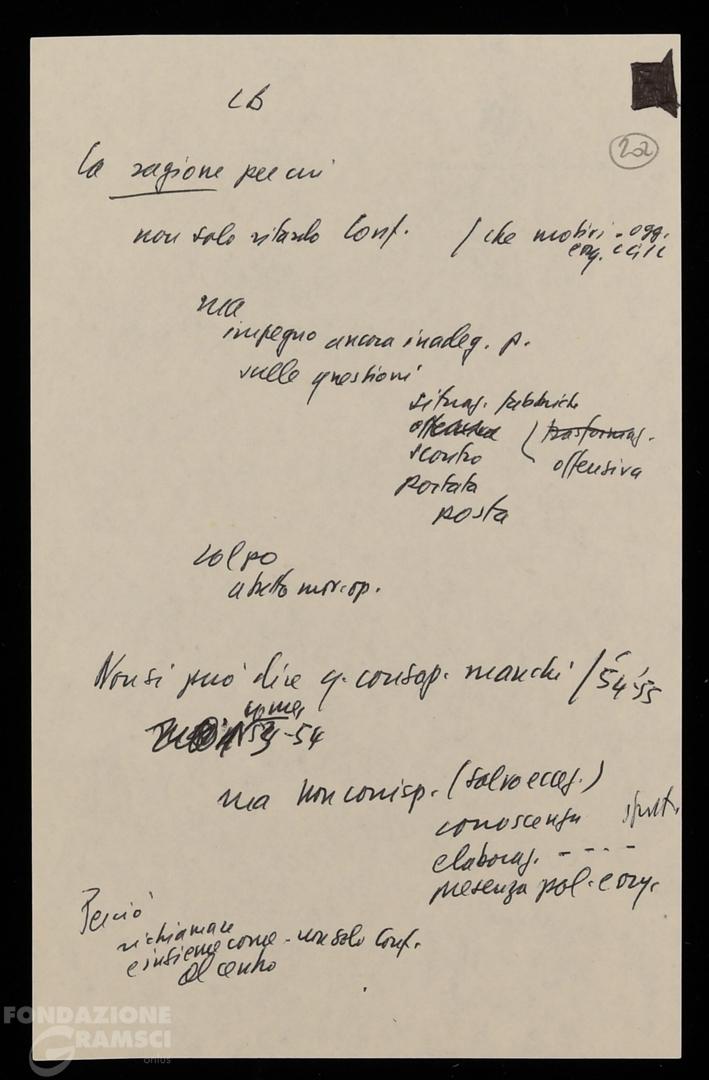 LB
22
La ragione per cui
non solo ritardo Conf. / che motivi - ogg.
org.
ma
impegno ancora inadeg. p.
sulle questioni
situaz. fabbriche
scontro ( trasformaz.
portata offensiva
posta
colpo
Non si può dire q. consap. manchi / 54-55
come 53-54
ma non corrisp. (salvo eccez.)
conoscenza
elaboraz. - - - -
presenza pol. e org.
Perciò
richiamare
e insieme come - non solo Conf.
al centro
FONDAZIONE
GRAMSCI
onlus